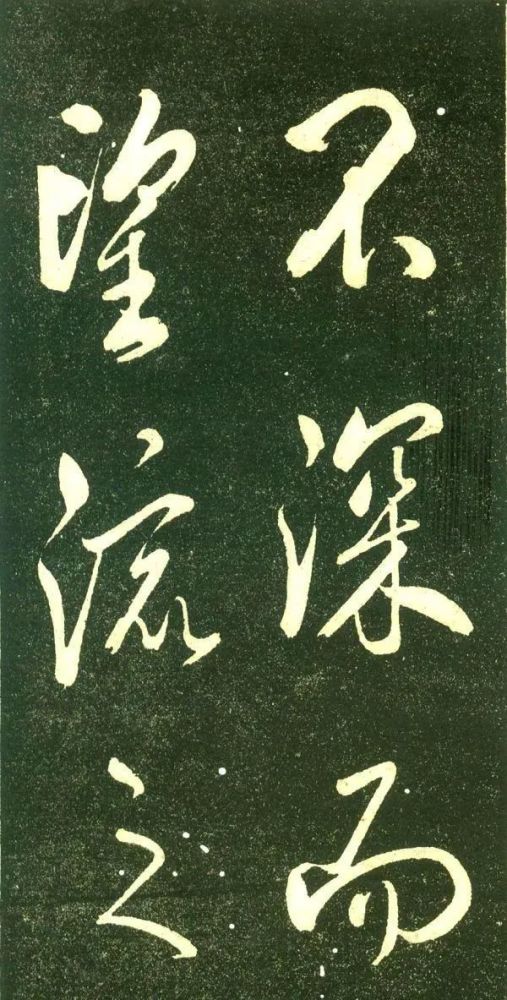 不深而
望流之